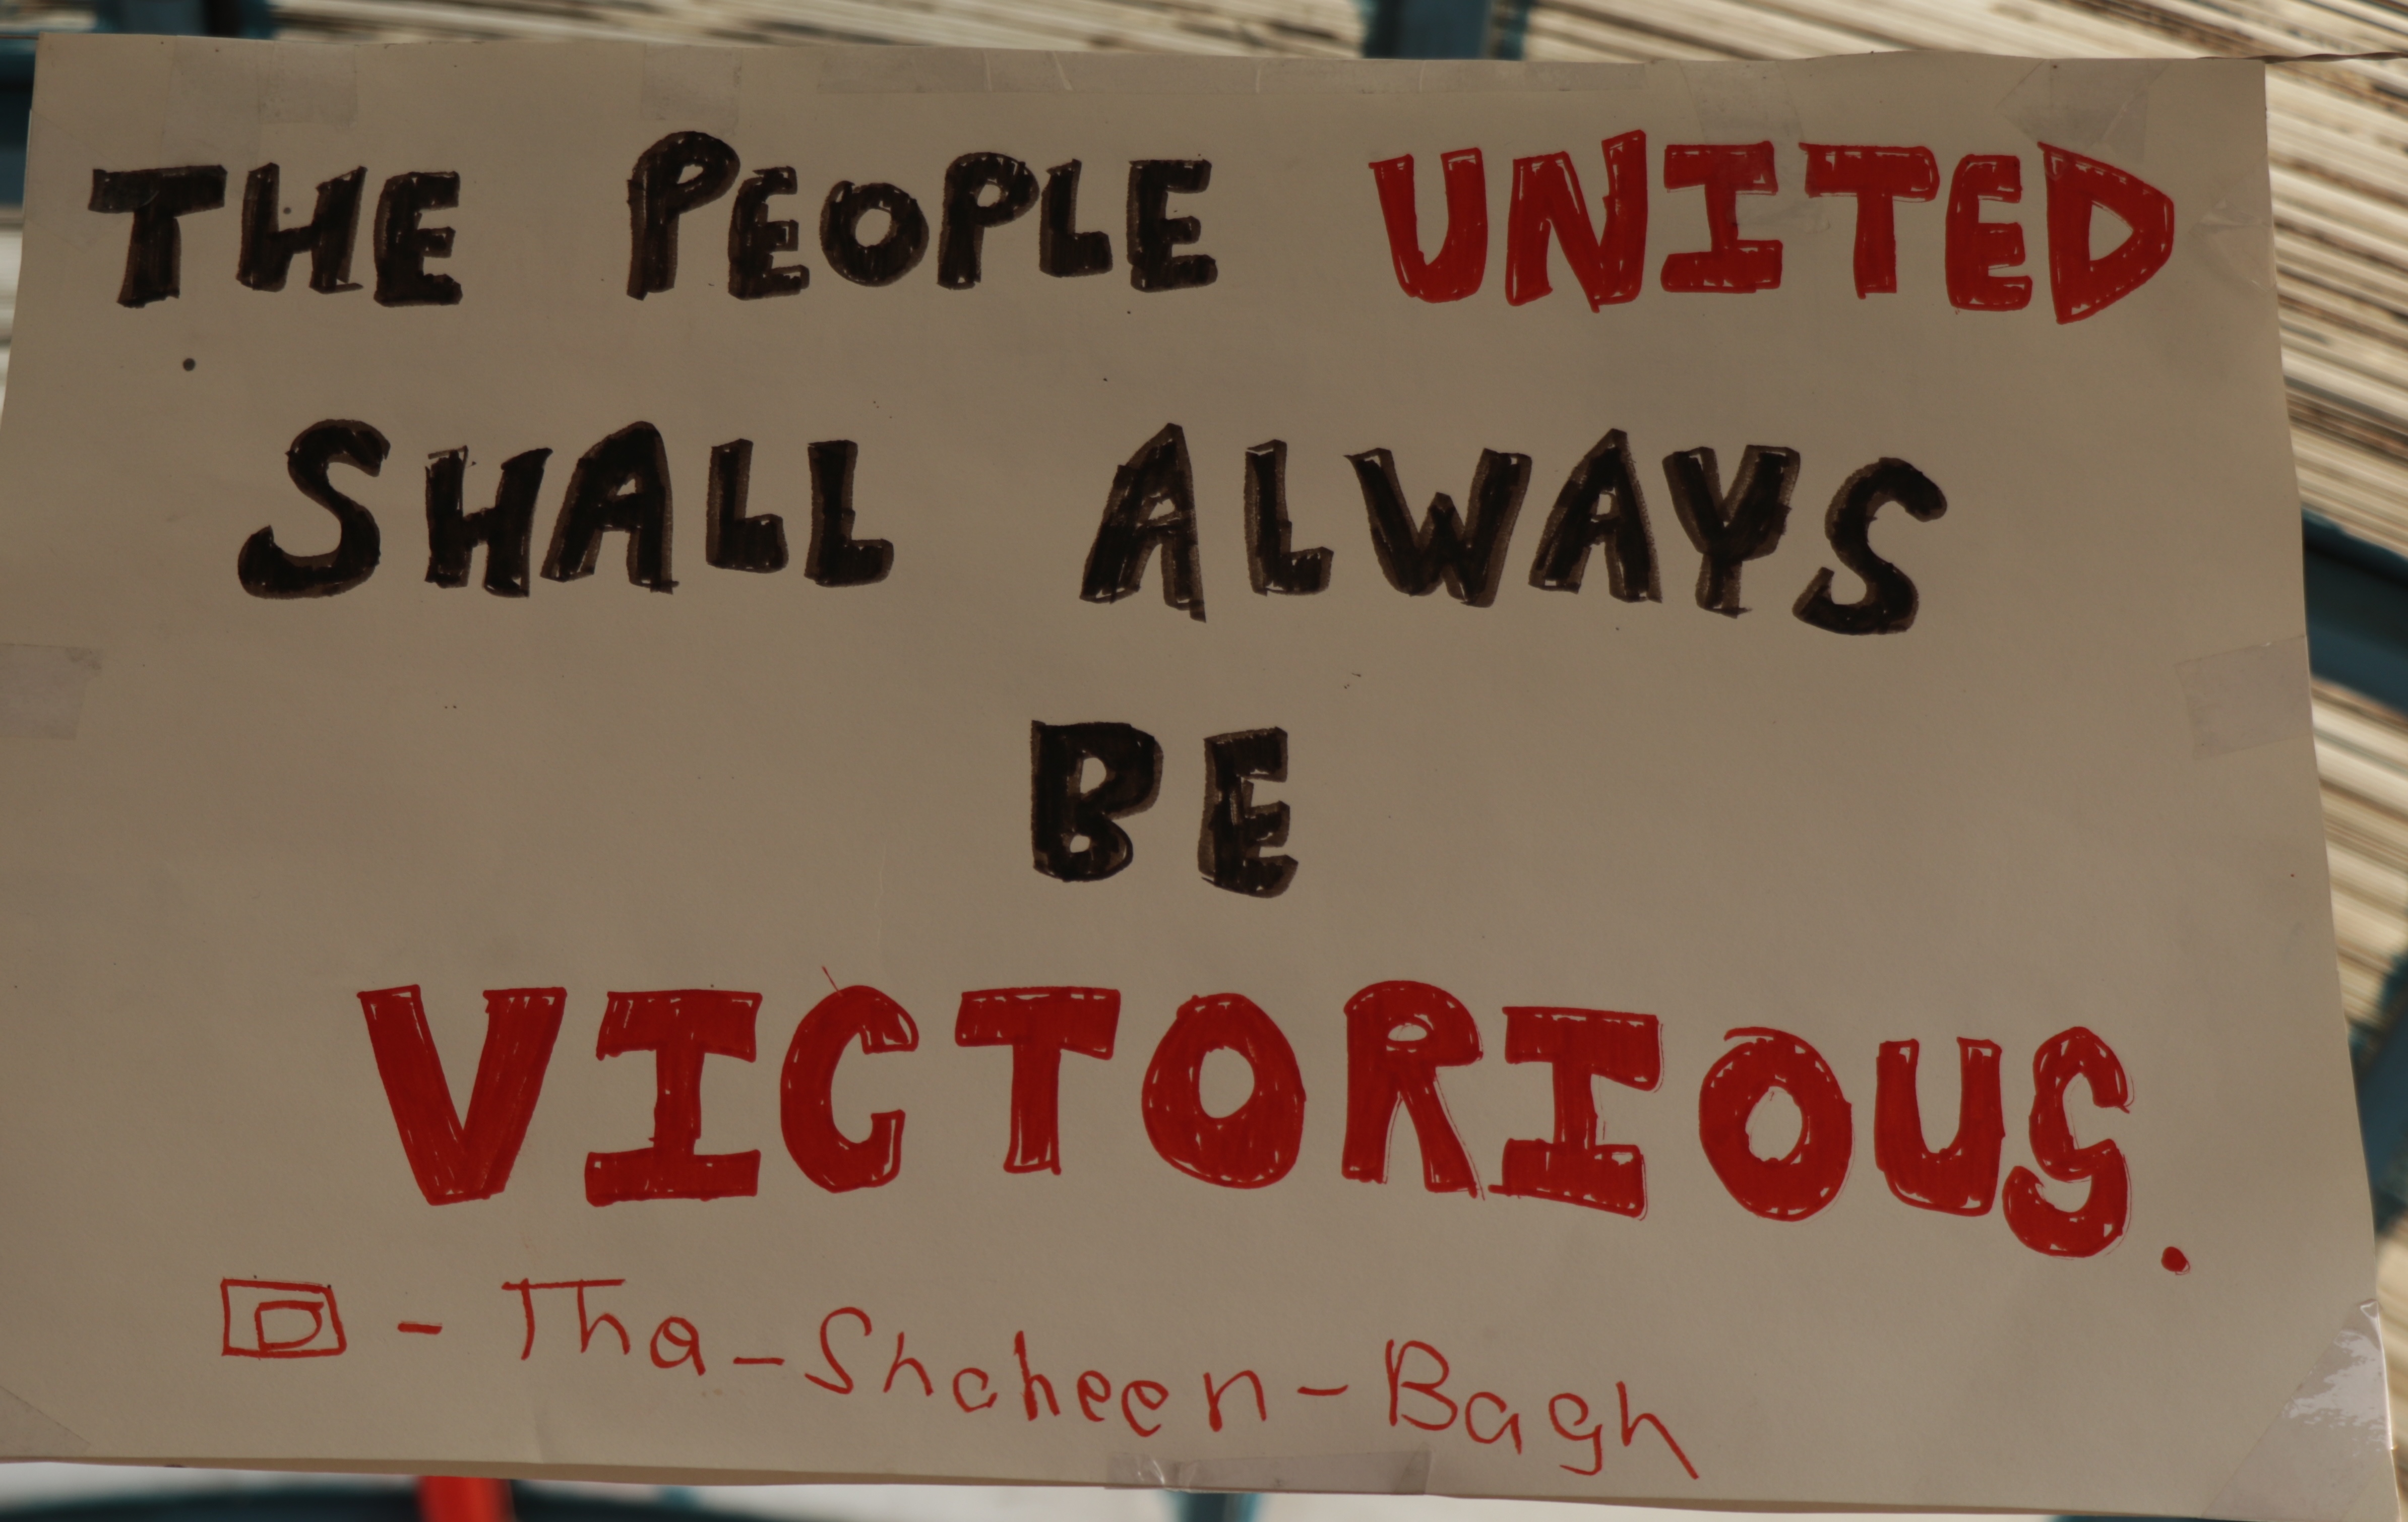 THE PEOPLE UNITED
SHALL ALWAYS
BE
VICTORIOUS.
D - Tha-Shaheen-Bagh